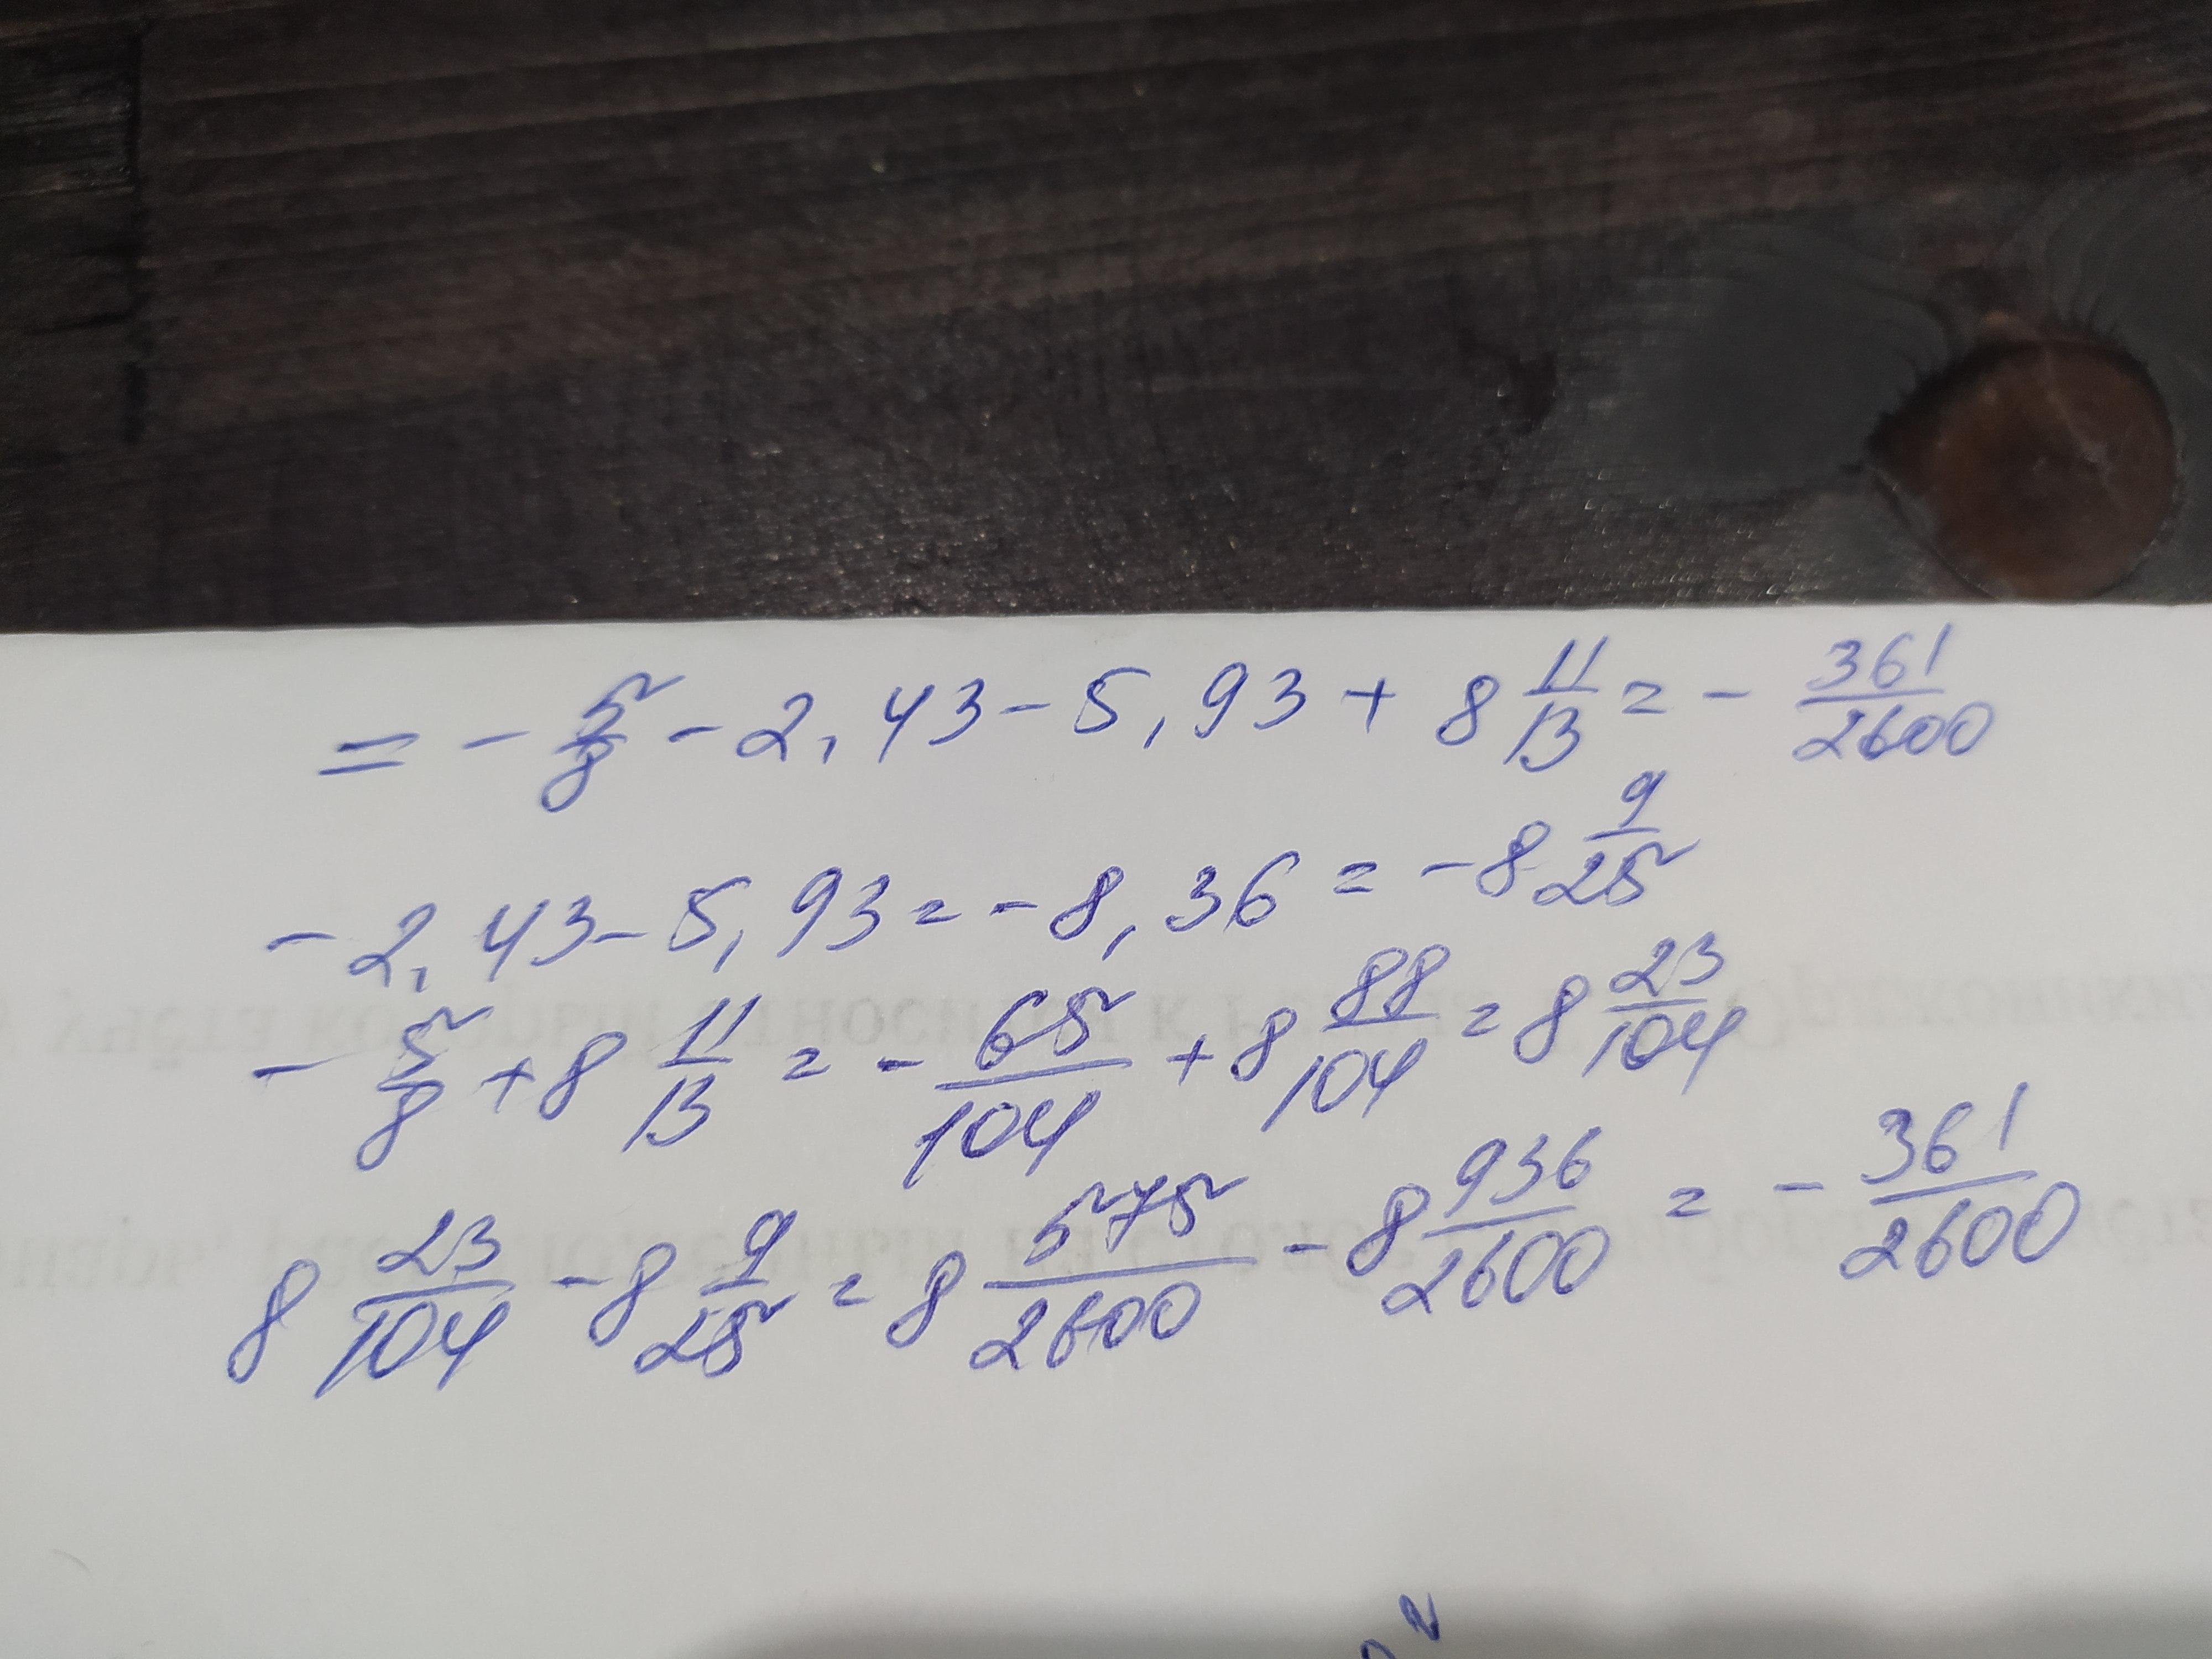 = - 5/8 - 2,43 - 5,93 + 8 11/13 = - 361/2600
- 2,43 - 5,93 = - 8,36 = - 8 9/25
- 5/8 + 8 11/13 = - 65/104 + 8 88/104 = 8 23/104
8 23/104 - 8 9/25 = 8 575/2600 - 8 936/2600 = - 361/2600